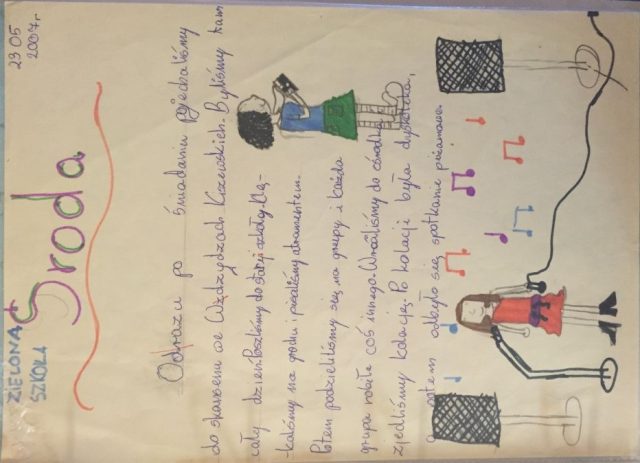 ZIELONA
SZKOŁA
23 05
2007r
Środa
Odrazu po śniadaniu pojechaliśmy
do skansenu we Wdzydzach Kiszewskich. Byliśmy tam
cały dzień. Poszliśmy do starej szkoły. Klę-
-kaliśmy na grochu i pisaliśmy atramentem.
Potem podzieliliśmy się na grupy i każda
grupa robiła coś innego. Wróciliśmy do ośrodka,
zjedliśmy kolację. Po kolacji była dyskoteka,
a potem odbyło się spotkanie piżamowe.